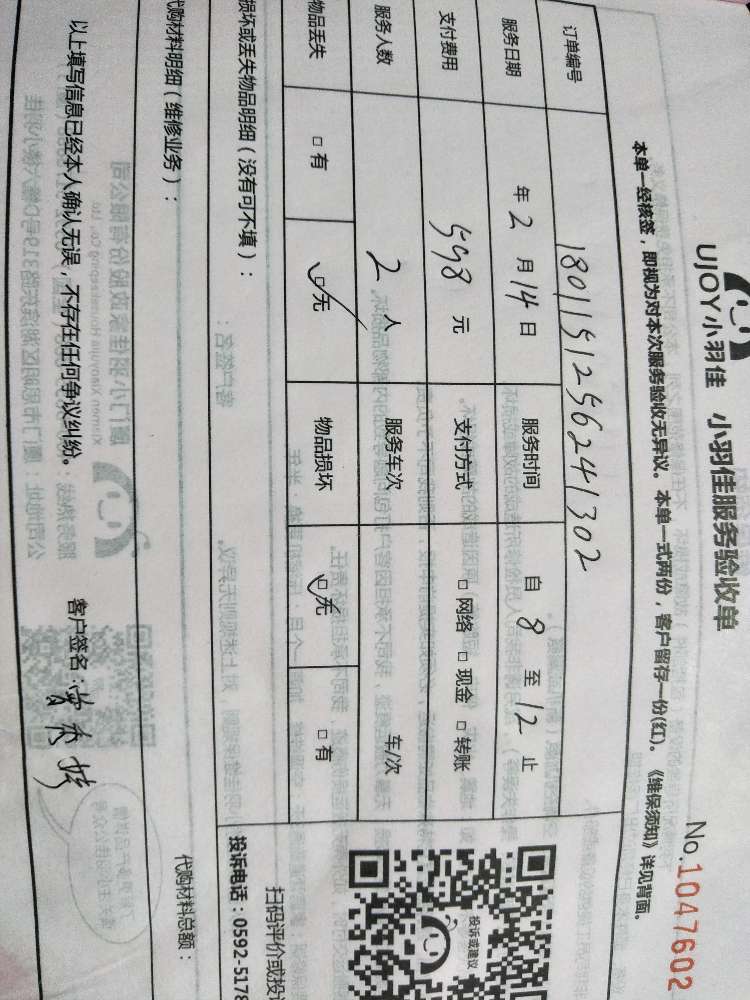 UJOY小羽佳 小羽佳服务验收单 No.1047602
本单一经核签，即视为对本次服务验收无异议。本单一式两份，客户留存一份(红)。《维保须知》详见背面。
订单编号 18011591256241302
服务日期 年 2 月 14 日 服务时间 自 8 至 12 止
支付费用 598 元 支付方式 □ 网络 □ 现金 □ 转账
服务人数 2 人 服务车次 车/次
物品丢失 □ 有 □ 无 物品损坏 □ 无 □ 有
投诉或建议
扫码评价或投
损坏或丢失物品明细（没有可不填）： 投诉电话：0592-5178
代购材料明细（维修业务）： 代购材料总额：
以上填写信息已经本人确认无误，不存在任何争议纠纷。 客户签名：曾秀婷